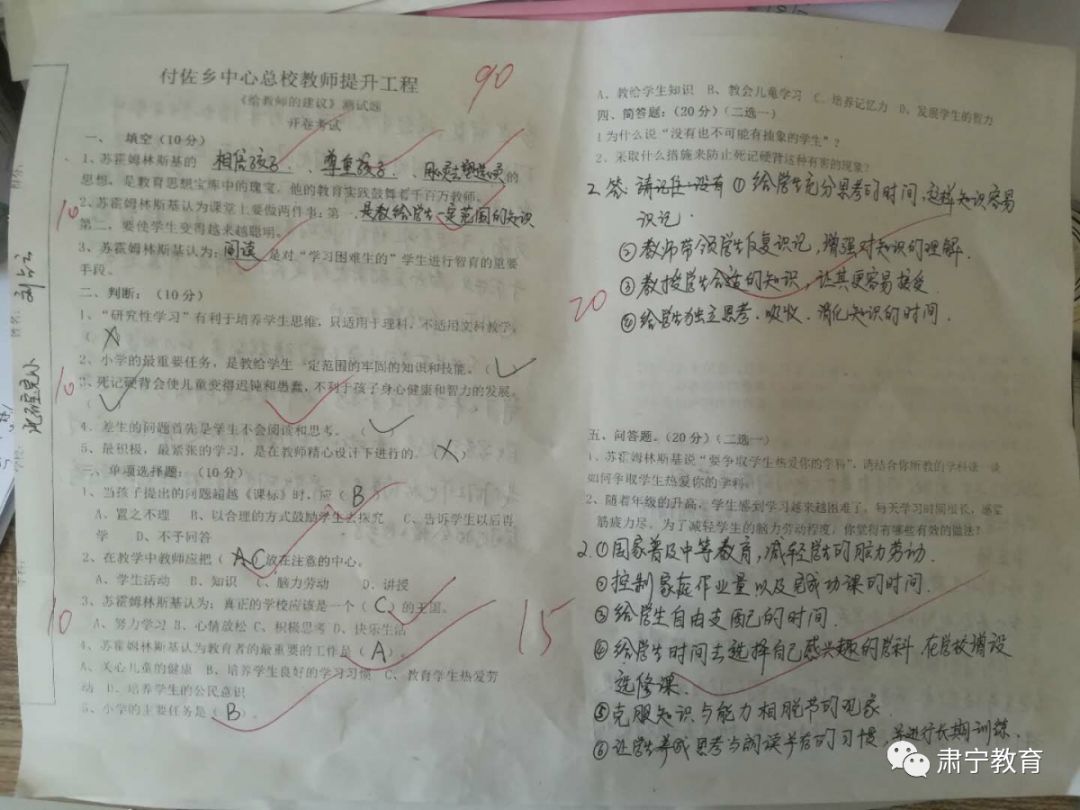 付佐乡中心总校教师提升工程
90
《给教师的建议》测试题
开卷考试
一、 填空(10分)
1、苏霍姆林斯基的 相信孩子、尊重孩子、用心灵去塑造心灵的
思想,是教育思想宝库中的瑰宝,他的教育实践鼓舞着千百万教师。
10
2、苏霍姆林斯基认为课堂上要做两件事:第一,是教给学生一定范围的知识
第二,要使学生变得越来越聪明。
3、苏霍姆林斯基认为:阅读 是对“学习困难生的”学生进行智育的重要
手段。
二、判断:(10分)
1、“研究性学习”有利于培养学生思维,只适用于理科,不适用文科教学。
( X
2、小学的最重要任务,是教给学生一定范围的牢固的知识和技能。(✓
10
3、死记硬背会使儿童变得迟钝和愚蠢,不利于孩子身心健康和智力的发展。
(✓
4、差生的问题首先是学生不会阅读和思考。(✓
5、最积极,最紧张的学习,是在教师精心设计下进行的。(X)
三、单项选择题:(10分)
1、当孩子提出的问题超越《课标》时,应(B)
A、置之不理 B、以合理的方式鼓励学生去探究 C、告诉学生以后再
学 D、不予回答
2、在教学中教师应把(AC放在注意的中心。
A、学生活动 B、知识 C、脑力劳动 D、讲授
3、苏霍姆林斯基认为:真正的学校应该是一个(C)的王国。
10
A、努力学习 B、心情放松 C、积极思考 D、快乐生活
4、苏霍姆林斯基认为教育者的最重要的工作是(A)。
A、关心儿童的健康 B、培养学生良好的学习习惯 C、教育学生热爱劳
动 D、培养学生的公民意识
5、小学的主要任务是(B)。
A、教给学生知识 B、教会儿童学习 C、培养记忆力 D、发展学生的智力
四、简答题:(20分)(二选一)
1为什么说“没有也不可能有抽象的学生”?
2、采取什么措施来防止死记硬背这种有害的现象?
2、答: ①给学生充分思考的时间,这样知识容易
识记.
②教师带领学生反复识记,增强对知识的理解.
③教授学生合适的知识,让其更容易接受
20
④给学生独立思考、吸收、消化知识的时间.
五、问答题。(20分)(二选一)
1、苏霍姆林斯基说“要争取学生热爱你的学科”,请结合你所教的学科谈一谈
如何争取学生热爱你的学科。
2、随着年级的升高,学生感到学习越来越困难了,每天学习时间很长,感觉
筋疲力尽。为了减轻学生的脑力劳动程度,你觉得有哪些有效的做法?
2.①国家普及中等教育,减轻学生的脑力劳动.
②控制家庭作业量以及完成功课的时间.
③给学生自由支配的时间.
15
④给学生时间去选择自己感兴趣的学科,在学校增设
选修课.
⑤克服知识与能力相脱节的现象
⑥让学生养成思考与阅读并存的习惯,并进行长期训练.
肃宁教育